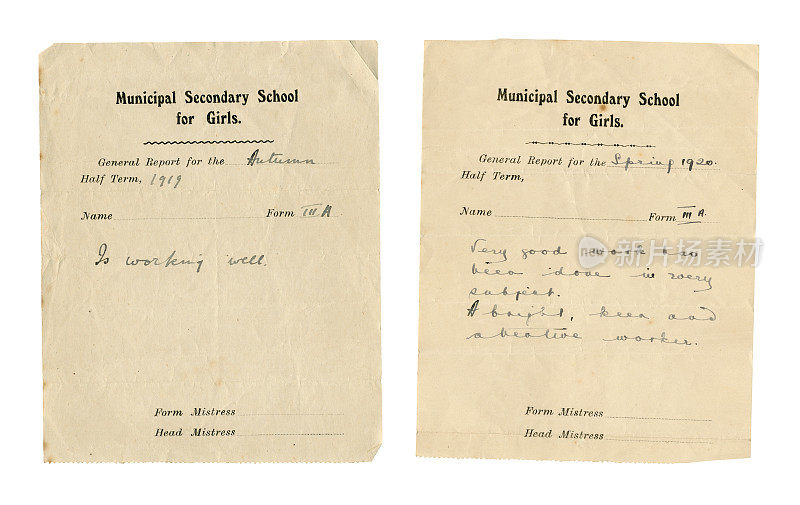 Municipal Secondary School
for Girls.
General Report for the Autumn
Half Term, 1919
Name Form III A
Is working well.
Form Mistress
Head Mistress
Municipal Secondary School
for Girls.
General Report for the Spring 1920.
Half Term,
Name Form III A.
Very good work has
been done in every
subject.
A bright, keen and
attentive worker.
Form Mistress
Head Mistress
new iStock